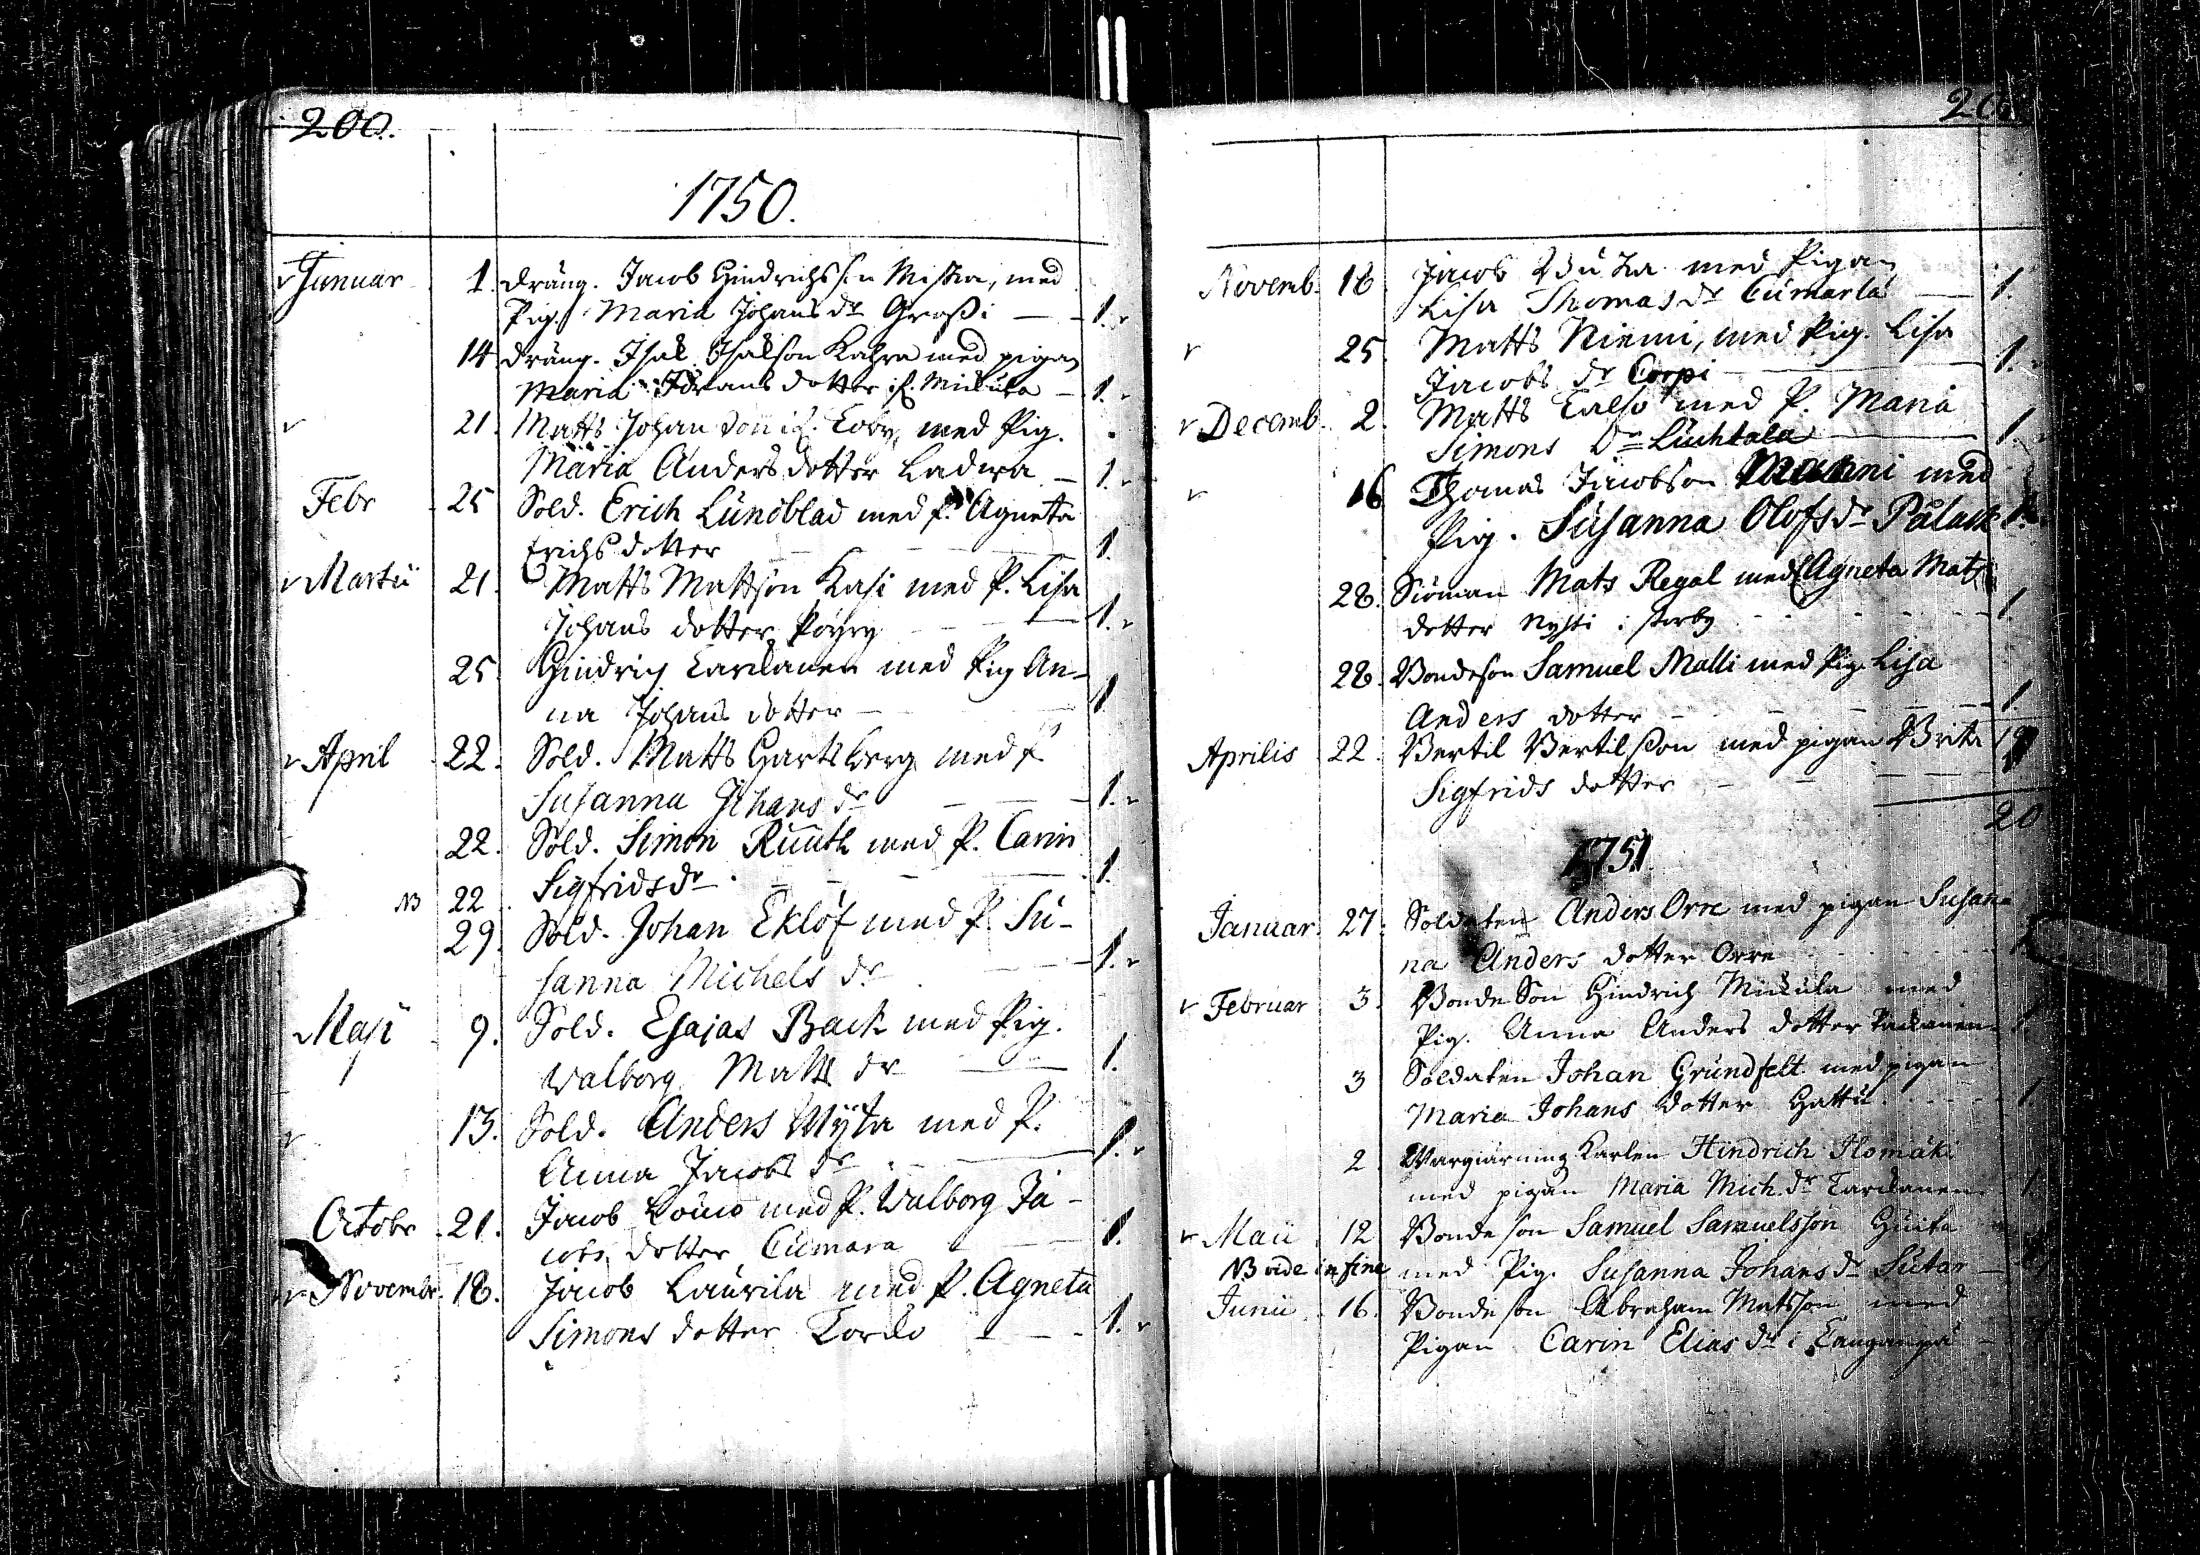 200.
1750.
Januar 1. Dräng. Jacob Hindrichsson Miska, med
Pig. Maria Johans dr Grossi — 1.
14 Dräng. Isak Isakson Kahra med pigan
Maria Görans dotter if. Mickula — 1.
21. Matts Johansson if. med Pig.
Maria Anders dotter Ladwa — 1.
Febr 25 Sold. Erich Lundblad med P. Agneta
Erichs dotter — 1.
Martii 21. Matts Mattson Kasi med P. Lisa
Johans dotter Pöyry — 1.
25 Hindrich Tarckainen med Pig An-
na Johans dotter — 1
April 22. Sold. Matts Hartsberg med P
Susanna Johans dr — 1.
22. Sold. Simon Ruuth med P. Carin
Sigfrids dr — 1.
NB 22
29. Sold. Johan Eklöf med P. Su-
sanna Michels dr — 1.
Maji 9. Sold. Esajas Back med Pig.
Walborg Matts dr — 1.
13. Sold. Anders Nyta med P.
Anna Jacobs dr — 1.
Octobr 21. Jacob med P. Walborg Ja-
cobs dotter Cumara — 1.
Novembr. 18. Jacob Laurila med P. Agneta
Simons dotter Torcko — 1.
Novemb. 18 Jacob med Pigan
Lisa Thomas dr Cumarla — 1.
25. Matts Niemi, med Pig. Lisa
Jacobs dr Corpi — 1.
Decemb. 2. Matts Talso med P. Maria
Simons Dr Luchtala — 1.
16 Thomas Jacobson Manni med
Pig. Susanna Olofs dr Palack 1.
28. Siöman Mats Regal med Agneta Mats
dotter Nysti i storby — 1.
28. Bondeson Samuel Malli med Pig. Lisa
Anders dotter — 1
Aprilis 22. Bertil Bertilsson med pigan Brita
Sigfrids dotter —
20
1751.
Januar. 27. Soldaten Anders Orre med pigan Susan-
na Anders dotter Orre
Februar 3. Bonde Son Hindrich Mickula med
Pig. Anna Anders dotter Packainen 1
3 Soldaten Johan Grundfelt med pigan
Maria Johans dotter Hattu 1
2. Wargiärning Karlen Hindrich Ilomäki
med pigan Maria Mich. dr Tarckanen 1.
Maii 12 Bonde son Samuel Samuelsson Huita
NB vide in fine med Pig. Susanna Johans dr Sutar —
Junii 16. Bonde son Abraham Matsson med
Pigan Carin Elias dr i